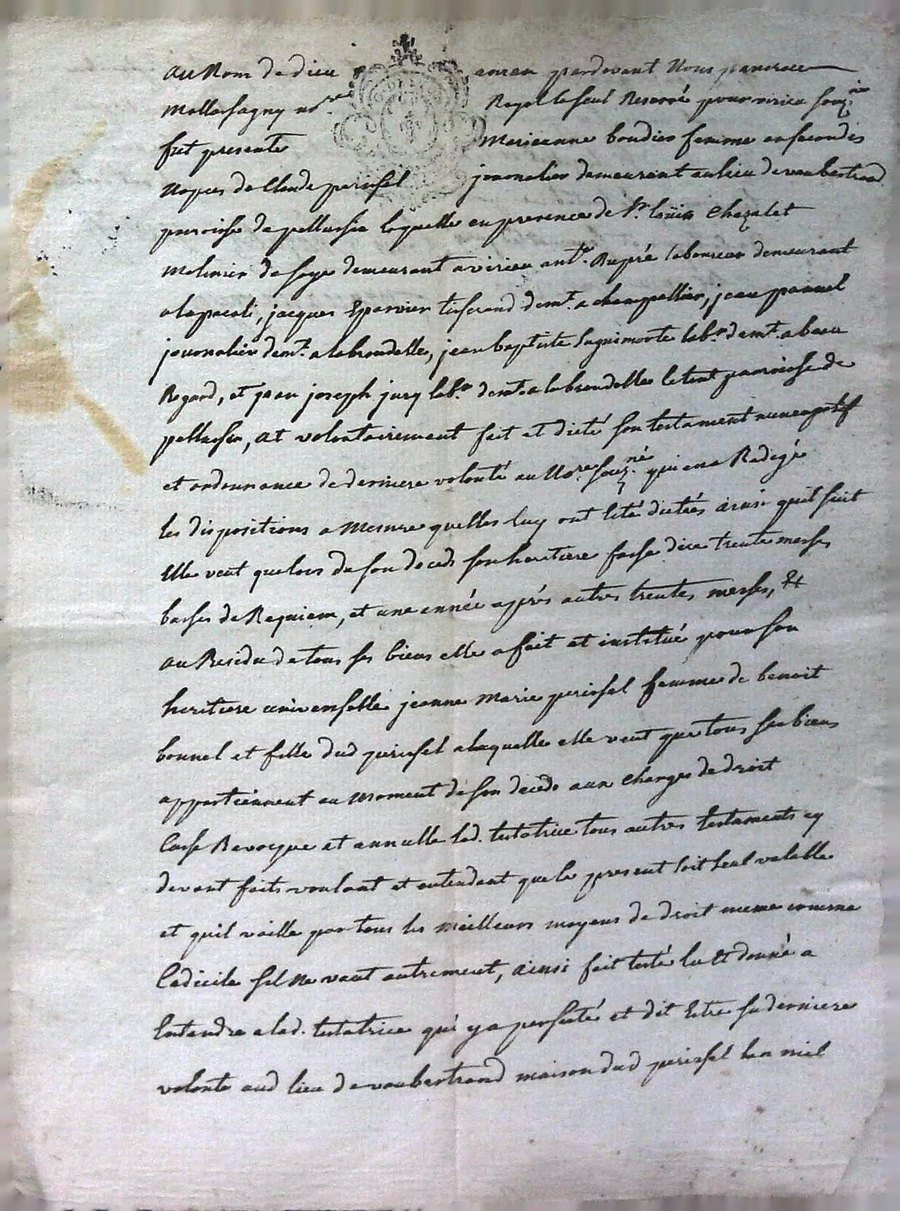 au Nom de dieu amen pardevant Nous pancrace
Mollasfagny no.re Royal le seul Reservé pour virieu souz.né
fut presente Marieanne boudier femme en secondes
Nopces de Claude perissel journalier demeurant au lieu de vaubertrand
paroisse de pellussin laquelle en presence de Sr. loüis Chazalet
Molinier de soye demeurant a virieu ant.e Dupré laboureur demeurant
a la pacali, jacques Eparvier tisserand dem.t a chanpallier, jean panel
journalier dem.t a la brondelle, jean baptiste laguimorte lab.r dem.t a beau
Regard, et jean joseph jury lab.r dem.t a la brondelle le tout parroisse de
pellussin, at volontairement fait et dicté son testament nuncupatif
et ordonnance de derniere volonté au No.re souz.né qui en a Redigé
les dispositions a Mesure quelles luy ont eté dictées ainsi quil suit
Elle veut que lors de son deceds son heritiere fasse dire trente messes
basses de Requiem, et une année apprés autres trentes messes, Et
au Residu de tous ses biens elle a fait et institué pour son
heritiere universelle jeanne Marie perissel femme de benoit
bonnel et fille dud perissel a laquelle elle veut que tous ses biens
appartiennent au moment de son deceds aux charges de droit
Casse Revocque et annulle lad. testatrice tous autres testaments cy
devant faits voulant et entendant que le present soit seul valable
et quil vaille par tous les meilleurs moyens de droit meme comme
Codicile sil ne vaut autrement, ainsi fait testé lu Et donné a
Entendre a lad. testatrice qui y a persisté et dit Estre sa derniere
volonté aud lieu de vaubertrand maison dud perissel Lan mil